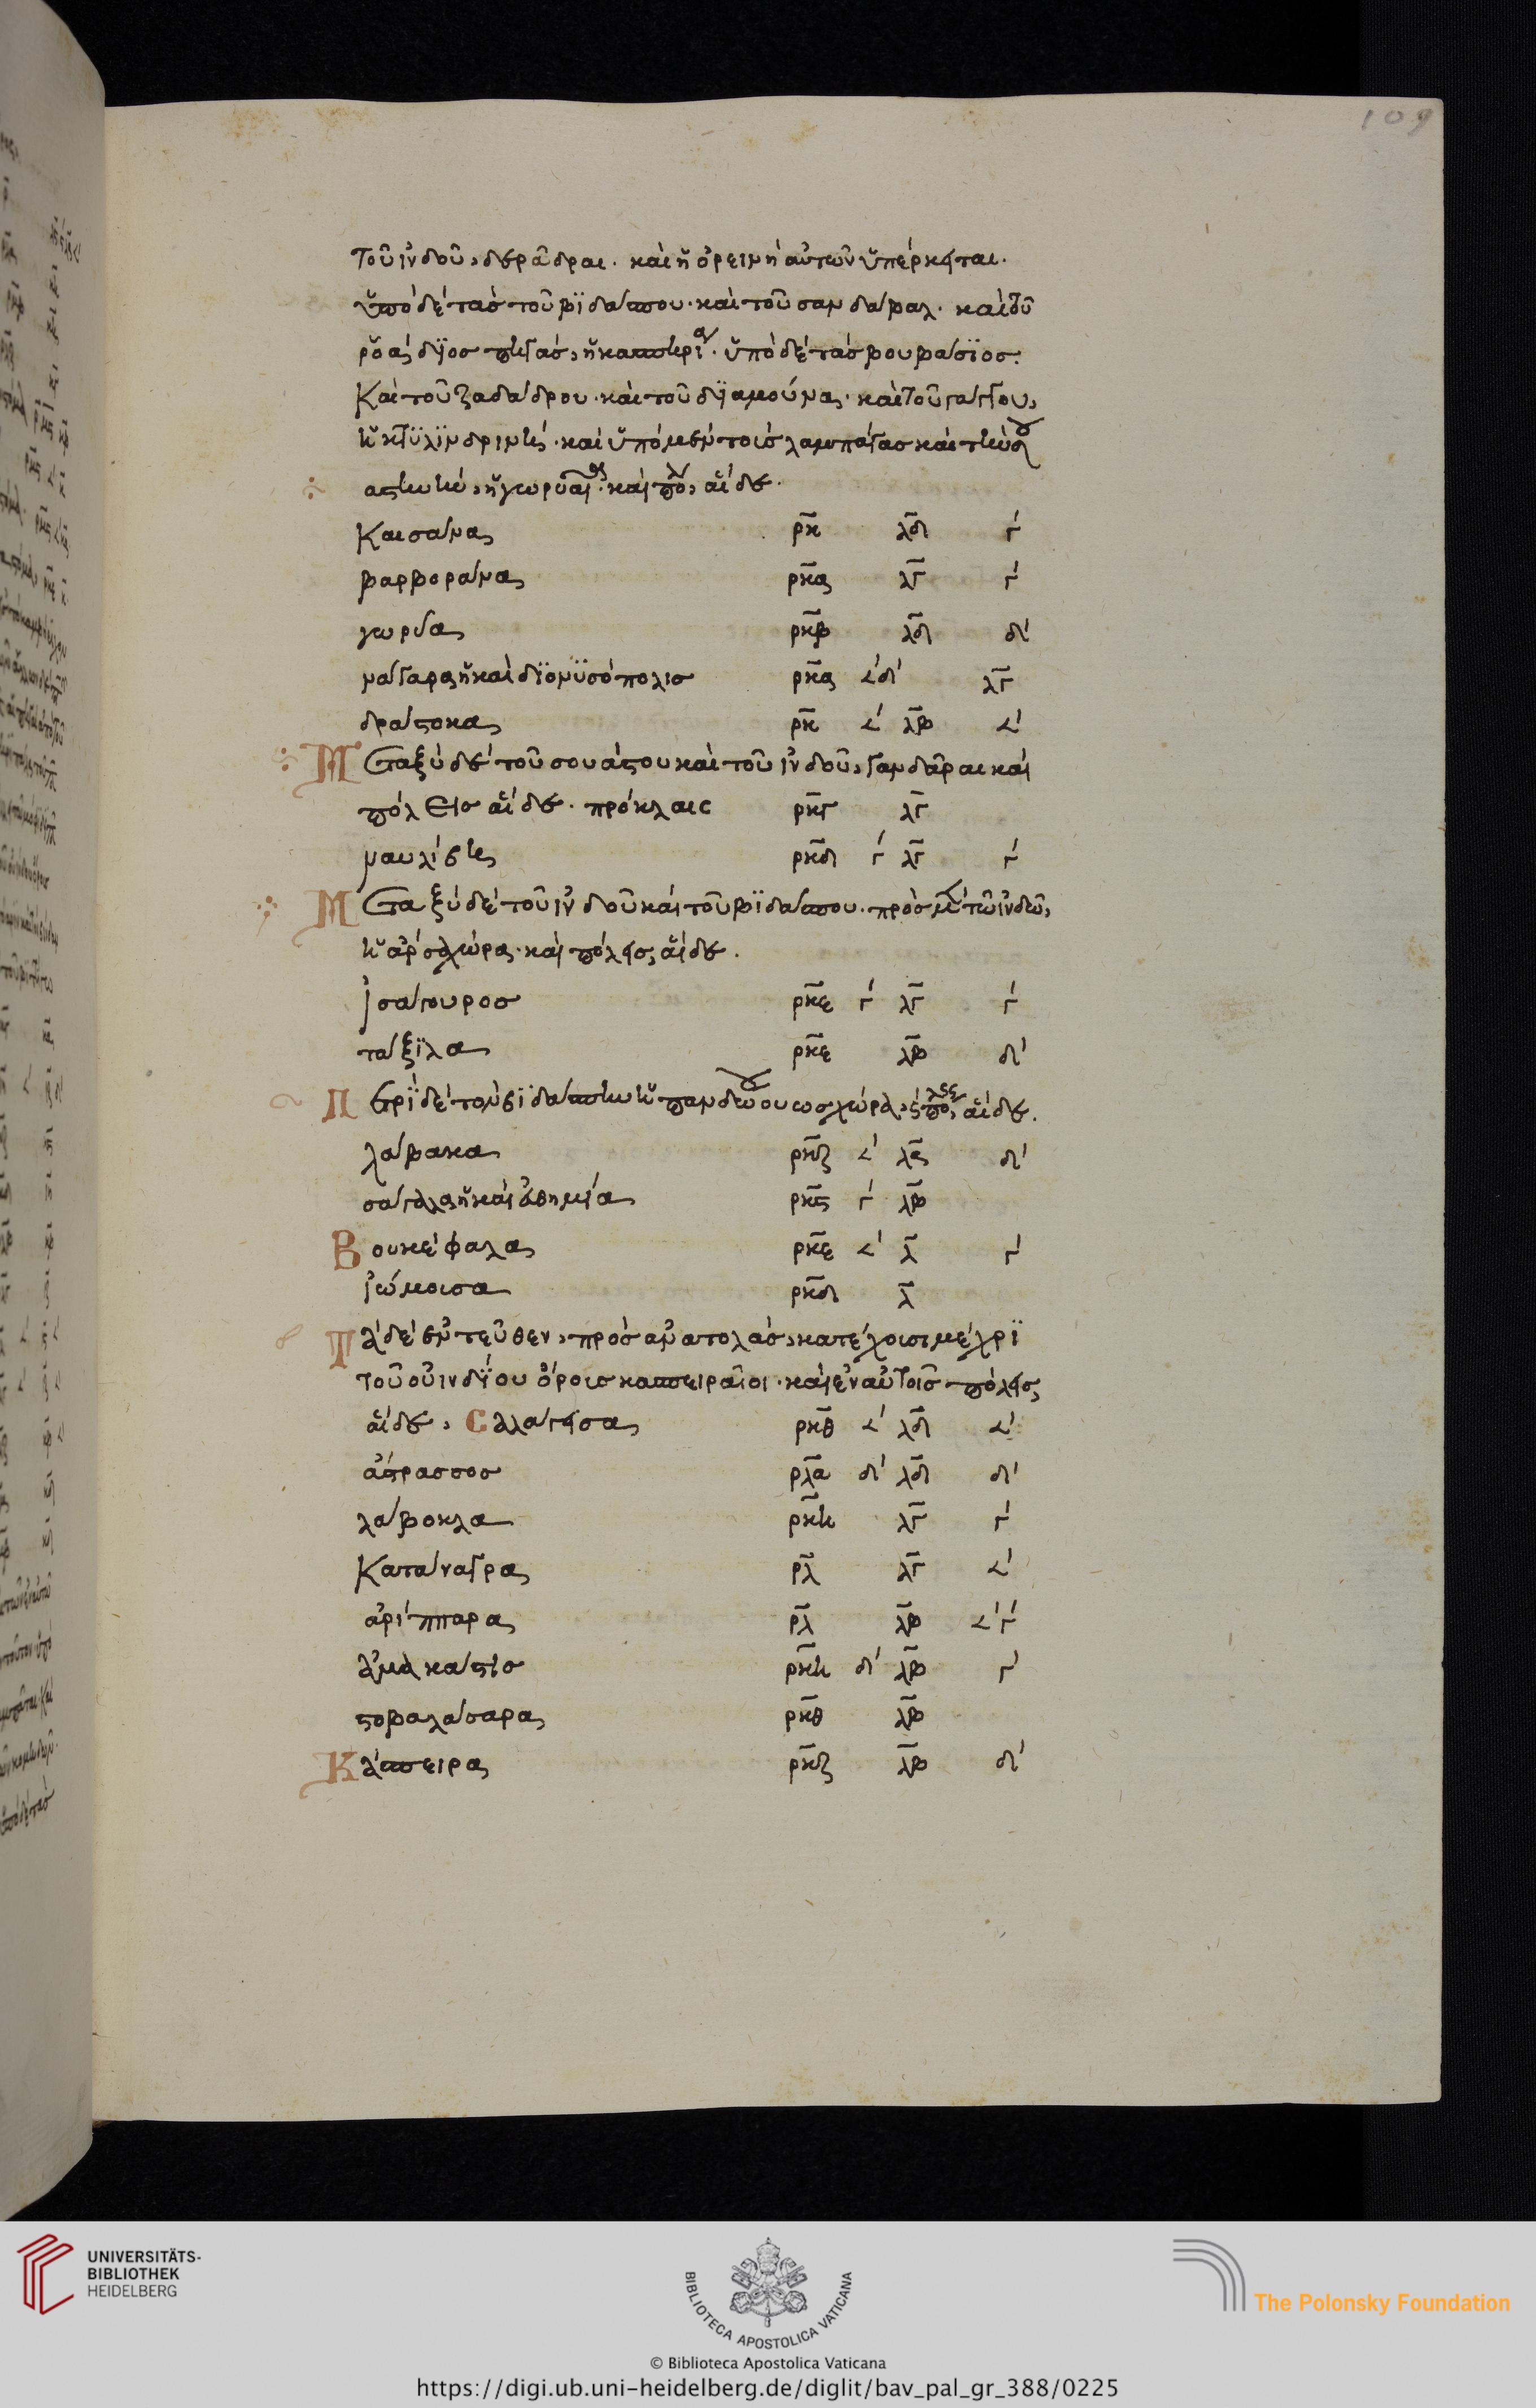 109
τοῦ ἰνδοῦ, δερᾶδραι. καὶ ἡ ὀρεινὴ αὐτῶν ὑπέρκειται.
ὑπὸ δὲ τὰς τοῦ βϊδάσπου. καὶ τοῦ σανδαβαλ. καὶ τοῦ
ῥοάδϊος πηγὰς, ἡ κασπηρία. ὑπὸ δὲ τὰς βουβάσϊος.
Καὶ τοῦ ζαδάδρου. καὶ τοῦ δϊαμούνα, καὶ τοῦ γάγγου,
ἡ κϋλϊνδρινὴ. καὶ ὑπὸ μὲν τοὺς λαμπάγας καὶ τὴν
αστηνὴν, ἡ γωρυαία. καὶ πόλ, αἵδε.
Καισάνα ρκ λδ γʹ
βαρβοράνα ρκα λγ γʹ
γωρύα ρκβ λδ δʹ
νάγαρα ἡ καὶ δϊονϋσόπολις ρκα ∠ʹδʹ λγ
δράστοκα ρκ ∠ʹ λβ ∠ʹ
Μεταξὺ δὲ τοῦ σουάστου καὶ τοῦ ἰνδοῦ, γανδᾶραι καὶ
πόλεις αἵδε. πρόκλαις ρκγ λγ
ναυλίβη ρκδ γʹ λγ γʹ
Μεταξὺ δὲ τοῦ ἰνδοῦ καὶ τοῦ βϊδάσπου. πρὸς μὲν τῶ ἰνδῶ,
ἡ ἄρσα χώρα. καὶ πόλεις, αἵδε.
ἰσάγουρος ρκε γʹ λγ γʹ
τάξϊλα ρκε λβ δʹ
Περὶ δὲ τὸν βϊδάσπην ἡ πανδώου ως χώρα, καὶ πόλεις αἵδε.
λάβακα ρκζ ∠ʹ λδ δʹ
σάγαλα ἡ καὶ εὐθημία ρκς γʹ λβ
Βουκέφαλα ρκε ∠ʹ λ γʹ
ἰώμουσα ρκδ λ
Τὰ δὲ ἐντεῦθεν, πρὸς ἀνατολὰς, κατέχουσι μέχρϊ
τοῦ οὐινδΐου ὄρους κασπειραῖοι. καὶ ἐν αὐτοῖς πόλεις
αἵδε, Cαλάγεισα ρκθ ∠ʹ λδ ∠ʹ
ἄστρασσος ρλα δʹ λδ δʹ
λάβοκλα ρκη λγ γʹ
Κατάναγρα ρλ λγ ∠ʹ
ἀρίσπαρα ρλ λβ ∠ʹγʹ
ἀμακάτις ρκη δʹ λβ γʹ
στοβαλάσαρα ρκθ λβ
Κάσπειρα ρκζ λβ δʹ
UNIVERSITÄTS-
BIBLIOTHEK
HEIDELBERG
BIBLIOTECA APOSTOLICA VATICANA
The Polonsky Foundation
© Biblioteca Apostolica Vaticana
https://digi.ub.uni-heidelberg.de/diglit/bav_pal_gr_388/0225